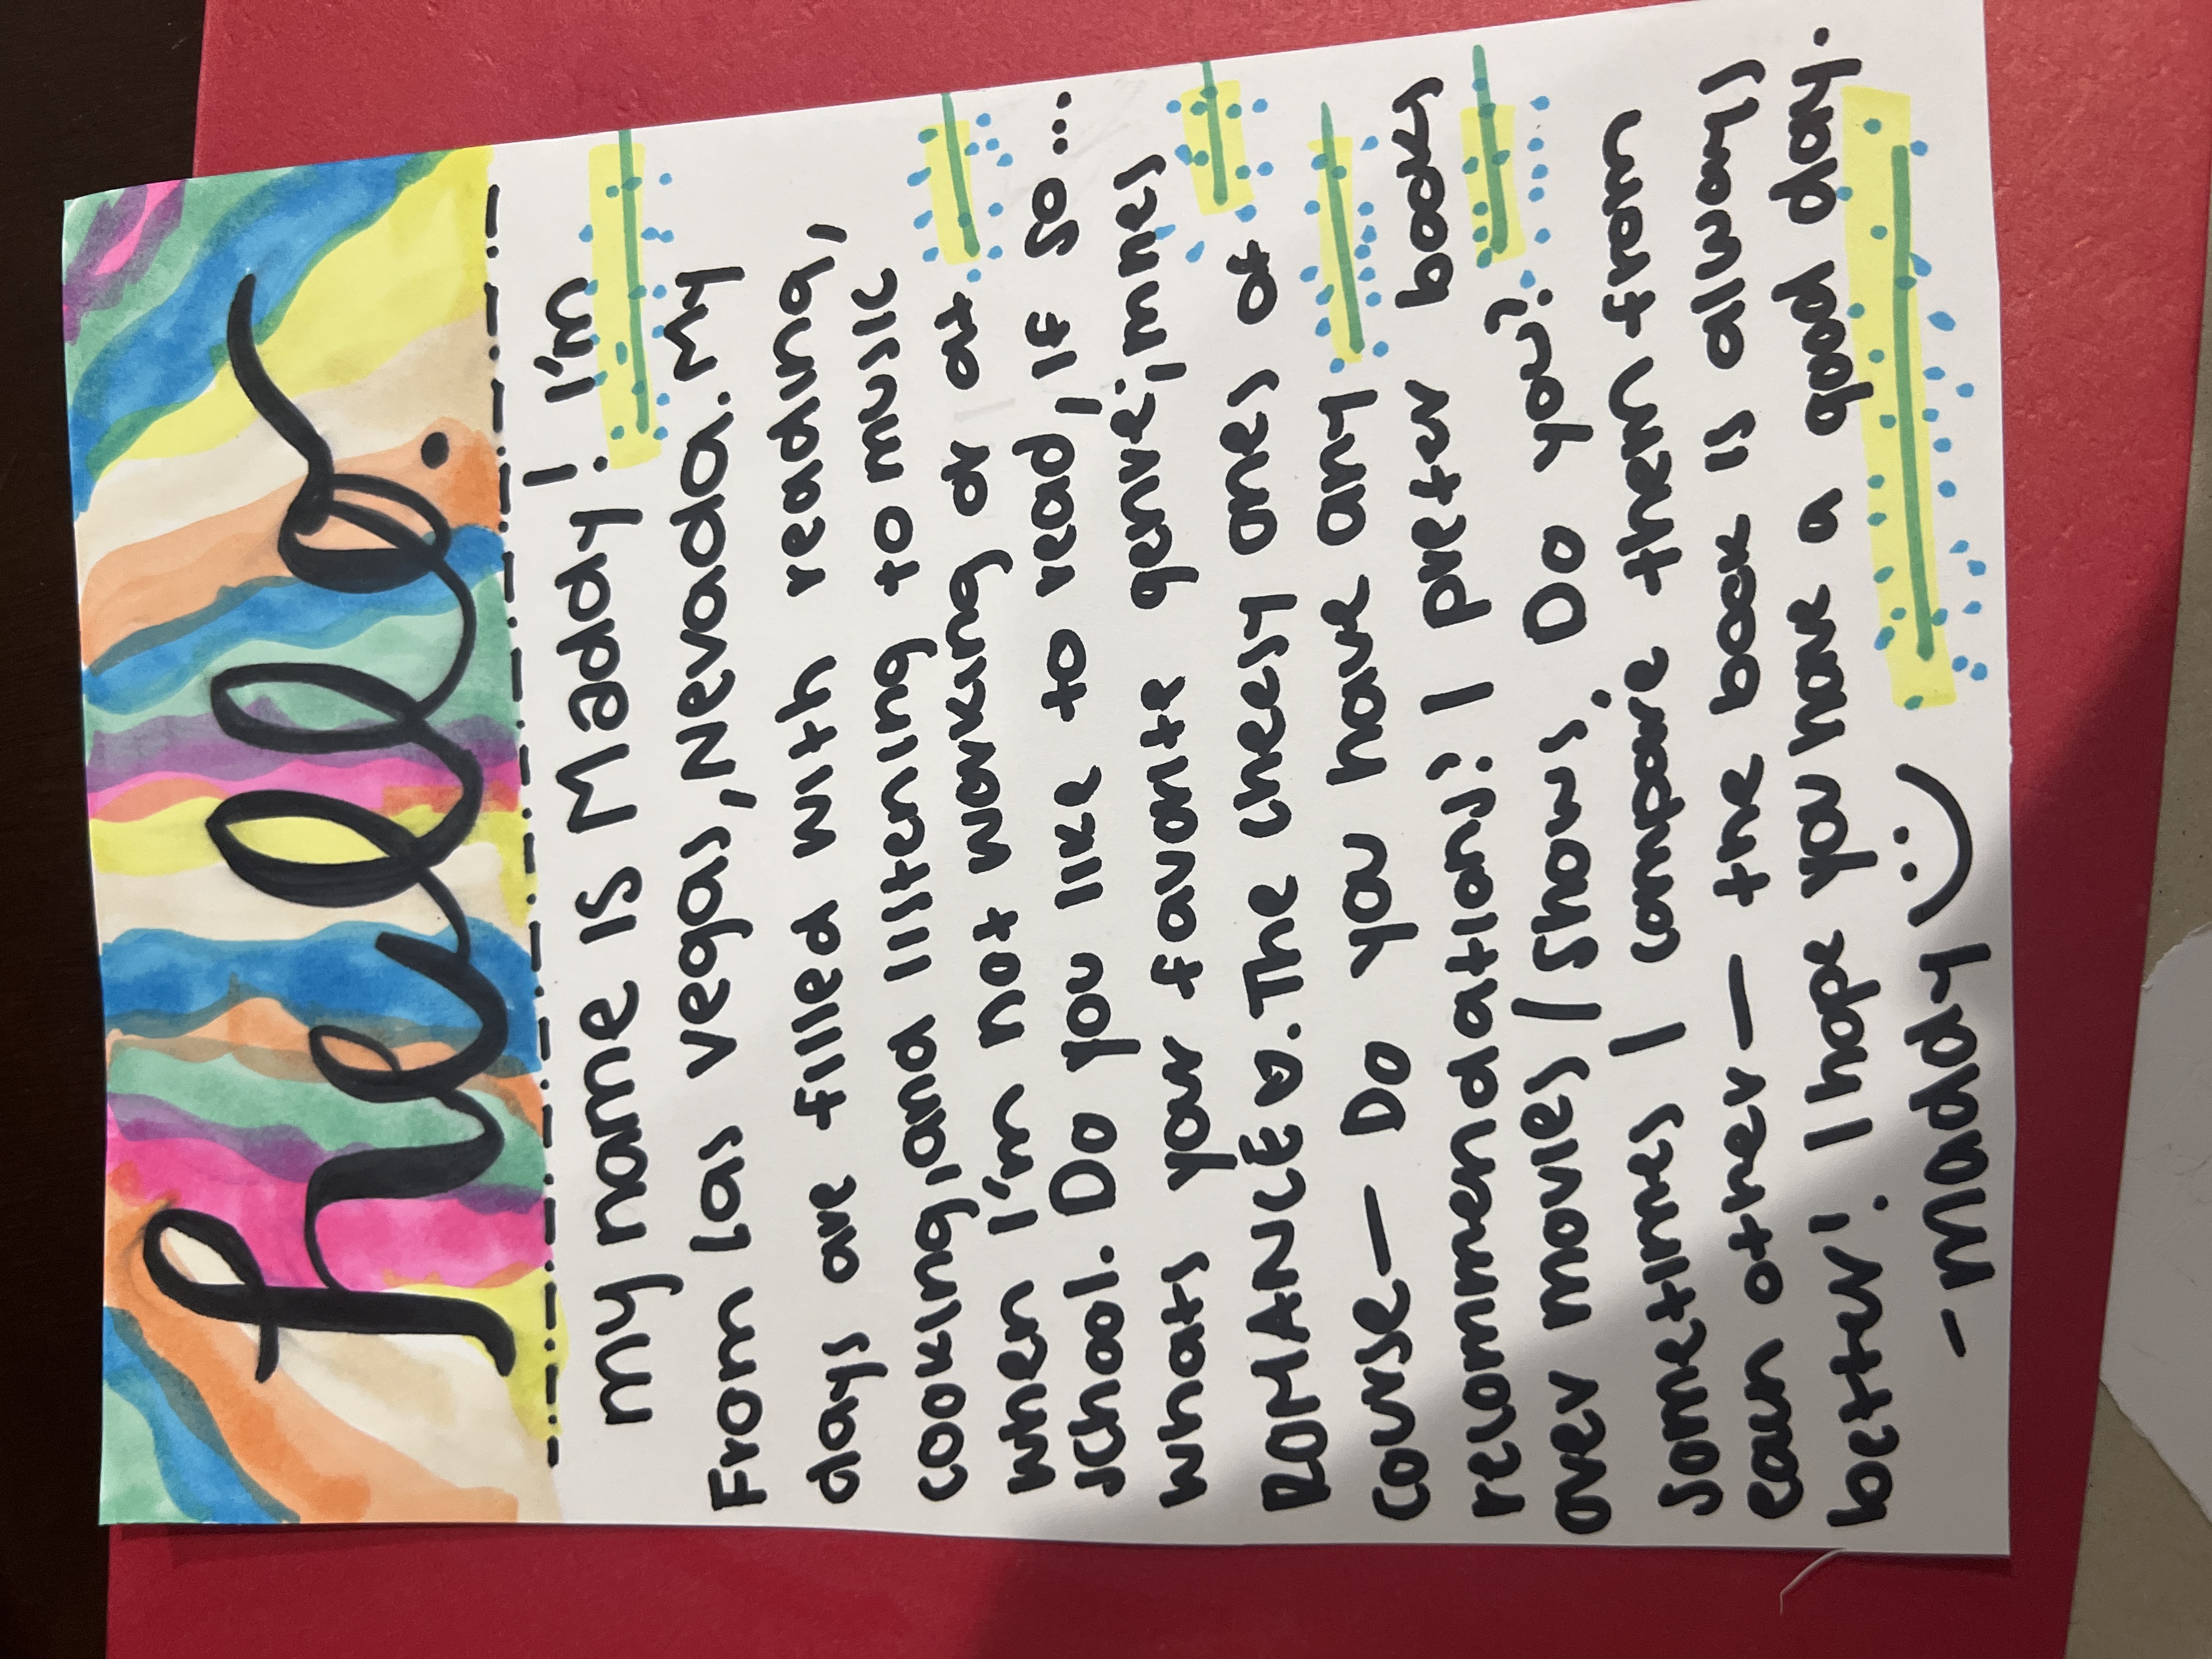 hello.
My name is Maddy! I'm
From Las Vegas, Nevada. My
days are filled with reading,
cooking, and listening to music
when I'm not working or at
school. Do you like to read, if so...
whats your favorite genre; mines
ROMANCE. The chesy ones of
course — Do you have any
recommendations? I prefer books
over movies/shows. Do you?
Sometimes I compare them from
eawn other — the book is always
better! I hope you have a good day.
- Maddy :)